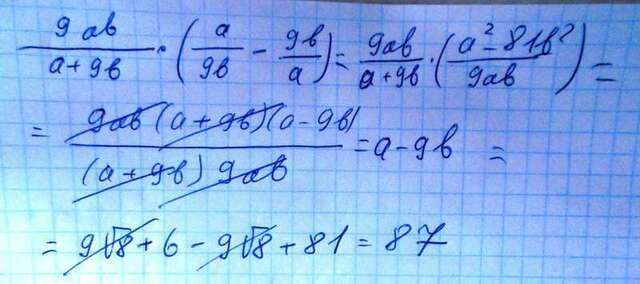 9ab/(a+9b) · (a/9b - 9b/a) = 9ab/(a+9b) · ((a²-81b²)/9ab) =
= 9ab(a+9b)(a-9b)/((a+9b) 9ab) = a-9b =
= 9√8 + 6 - 9√8 + 81 = 87